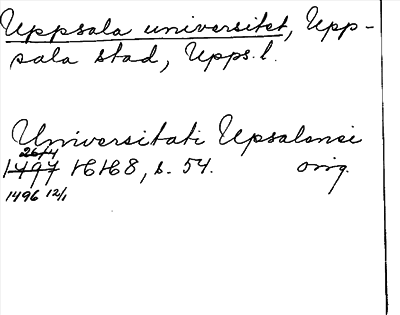 Uppsala universitet, Upp-
sala stad, Upps.l.
Universitati Upsalensi
26/4
1497 HH68, s. 54. orig.
1496 12/1